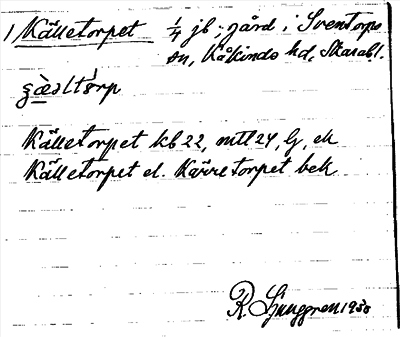 1) Källetorpet 1/4 jb; gård i Sventorps
sn, Kåkinds hd, Skarabl.
Källetorpet kb 22, mtl 24, G, ek
Källetorpet el. Kärretorpet bek
R. Ljunggren 1930